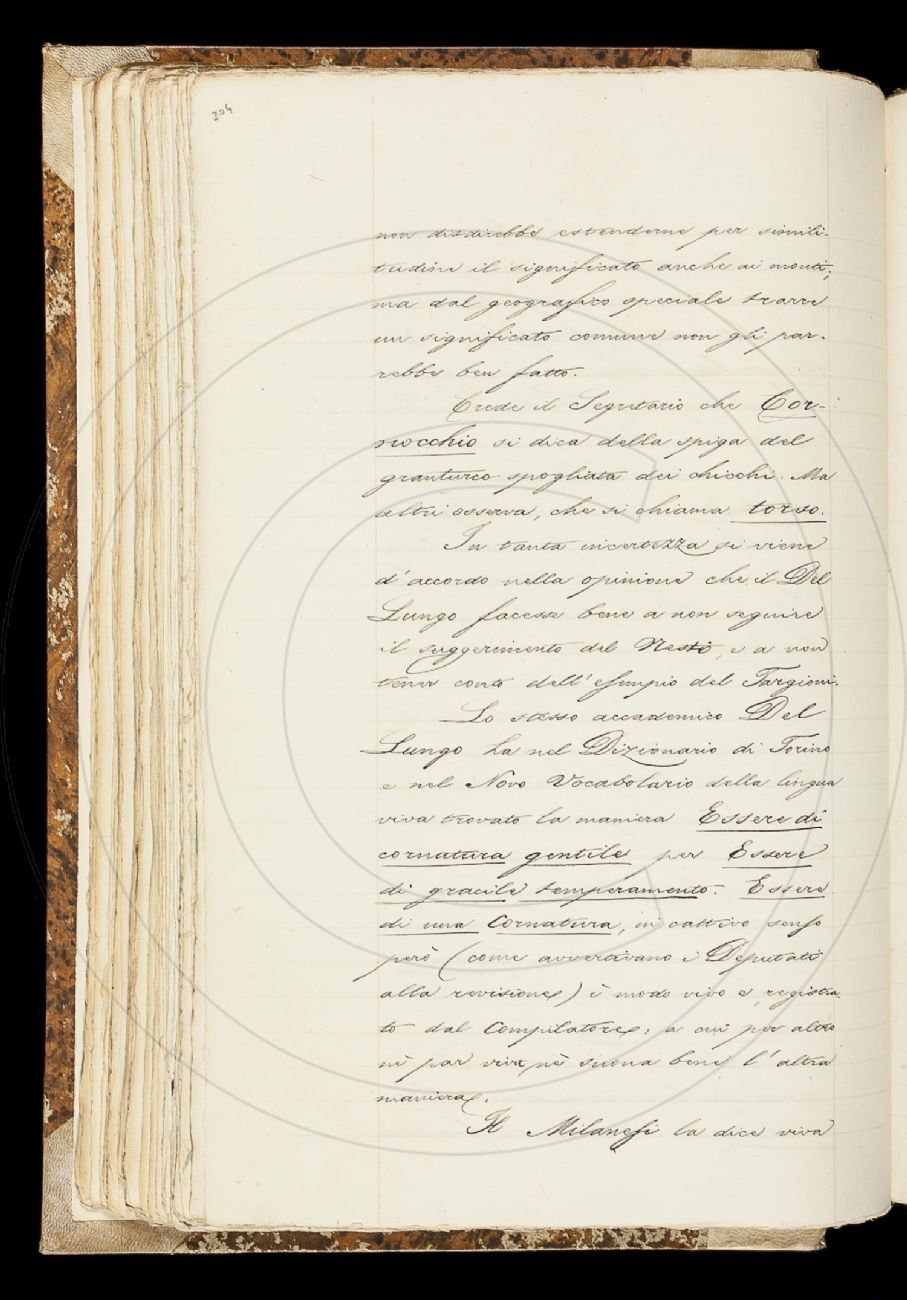 204
non disdirebbe estenderne per simili-
tudine il significato anche ai monti;
ma dal geografico speciale trarre
un significato comune non gli par-
rebbe ben fatto.
Crede il Segretario che Cor-
nocchio si dica della spiga del
granturco spogliata dei chicchi. Ma
altri osserva, che si chiama torso.
In tanta incertezza si viene
d'accordo nella opinione che il Del
Lungo facesse bene a non seguire
il suggerimento del Nesti, e a non
tener conto dell'esempio del Targioni.
Lo stesso accademico Del
Lungo ha nel Dizionario di Torino
e nel Novo Vocabolario della lingua
viva trovato la maniera Essere di
cornatura gentile per Essere
di gracile temperamento. Essere
di una Cornatura, in cattivo senso
però (come avvertivano i Deputati
alla revisione) è modo vivo e registra-
to dal Compilatore: a cui per altro
nè par viva nè suona bene l'altra
maniera.
Il Milanesi la dice viva